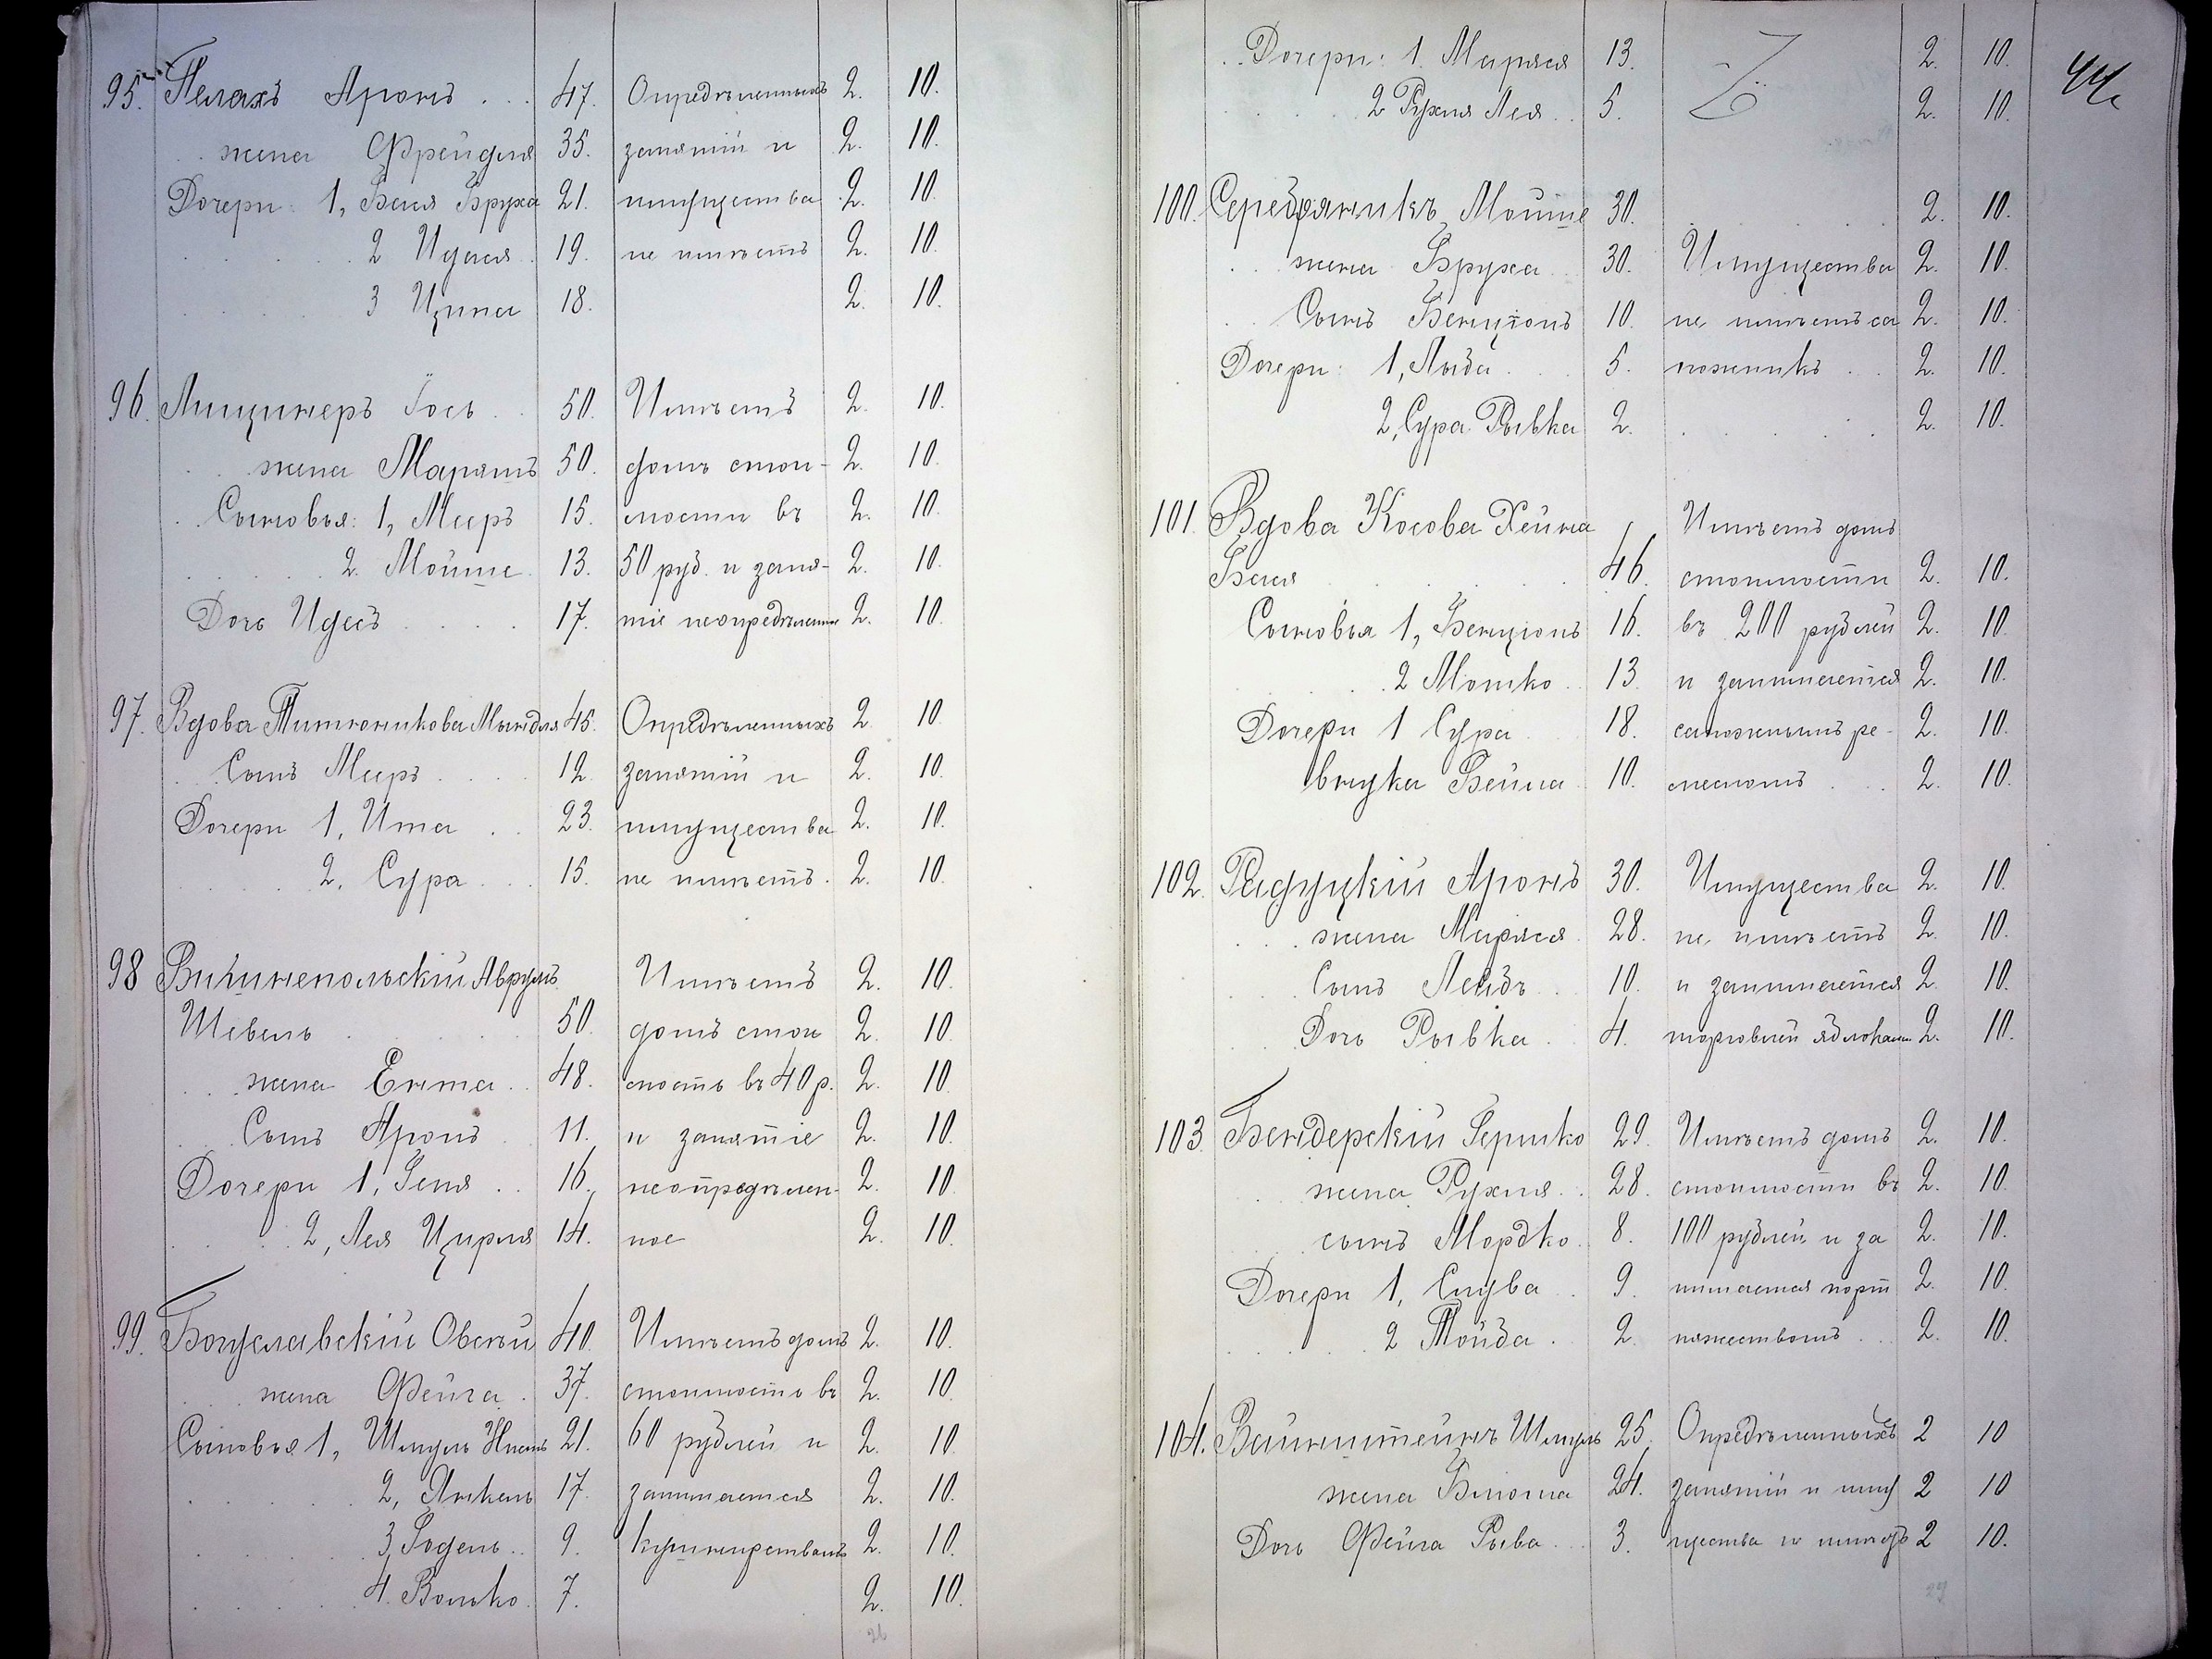 95. Пелахъ Аронъ . . . 47. Опредѣленныхъ 2. 10.
жена Фрейдля 35. занятій и 2. 10.
Дочери: 1, Бася Бруха 21. имущества 2. 10.
2 Идася 19. не имѣетъ 2. 10.
3 Ципа 18. 2. 10.
96. Лищинеръ Іось . . 50. Имѣетъ 2. 10.
жена Маріямъ 50. домъ стои- 2. 10.
Сыновья: 1, Мееръ 15. мости въ 2. 10.
2. Мойше 13. 50 руб. и заня- 2. 10.
Дочь Идесъ . . . . 17. тіе неопредѣленное 2. 10.
97. Вдова Тютюникова Мындля 45. Опредѣленныхъ 2. 10.
Сынъ Мееръ . . . . 12. занятій и 2. 10.
Дочери 1, Ита . . 23. имущества 2. 10.
2, Сура . . . 15. не имѣетъ. 2. 10.
98 Вишнепольскій Аврумъ Имѣетъ 2. 10.
Шевель 50. домъ стои 2. 10.
жена Ента . . 48. мость въ 40 р. 2. 10.
Сынъ Аронъ 11. и занятіе 2. 10.
Дочери 1, Геня . . 16. неопредѣлен- 2. 10.
2, Лея Цирля 14. ное 2. 10.
99. Богуславскій Овсѣй 40. Имѣетъ домъ 2. 10.
жена Фейга . 37. стоимость въ 2. 10.
Сыновья 1, Шмуль 21. 60 рублей и 2. 10.
2, Янкель 17. занимается 2. 10.
3, Годель . . 9. кушнирствомъ 2. 10.
4. Волько. 7. 2. 10.
26
Дочери: 1. Маріяся 13. 2. 10.
2 Рухля Лея . . 5. 2. 10.
44
100. Серебряникъ Мойше 30. 2. 10.
жена Бруха 30. Имущества 2. 10.
Сынъ Бенціонъ 10. не имѣетъ са 2. 10.
Дочери: 1, Лыба . . . 5. пожникъ . . 2. 10.
2, Сура Рывка 2. 2. 10.
101. Вдова Косова Хейна Имѣетъ домъ
Бася 46. стоимости 2. 10.
Сыновья 1, Бенціонъ 16. въ 200 рублей 2. 10.
2 Мошко . 13. и занимается 2. 10.
Дочери 1 Сура 18. сапожнымъ ре- 2. 10.
внука Бейла 10. месломъ . . . 2. 10.
102. Радуцкій Аронъ 30. Имущества 2. 10.
жена Маріяся 28. не имѣетъ 2. 10.
Сынъ Лейбъ . 10. и занимается 2. 10.
Дочь Рывка . 4. торговлей яблоками 2. 10.
103. Бендерскій Гершко 29. Имѣетъ домъ 2. 10.
жена Рухля . . 28. стоимости въ 2. 10.
сынъ Мордко . 8. 100 рублей и за 2. 10.
Дочери 1, Слува . 9. нимается порт 2. 10.
2 Тойба . 2. няжествомъ . . 2. 10.
104. Вайнштейнъ Шмуль 25. Опредѣленныхъ 2 10
жена Блюма 24. занятій и иму 2 10
Дочь Фейга Рыва . . . 3. щества не имѣетъ 2 10.
29